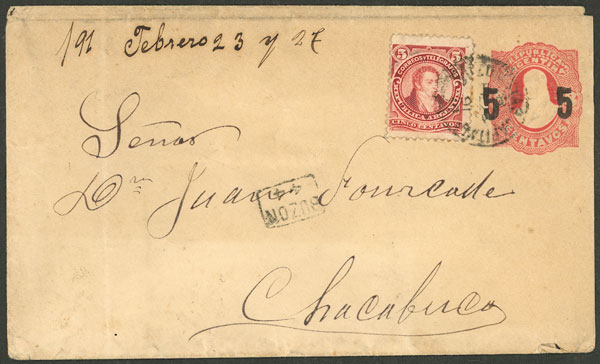 /91 Febrero 23 y 27
5 5
CORREOS Y TELEGRAFOS
REPUBLICA ARGENTINA
CINCO CENTAVOS
REPUBLICA
ARGENTINA
5 5
CENTAVOS
Señor
Dn Juan Fourcade
BUZON
44
Chacabuco